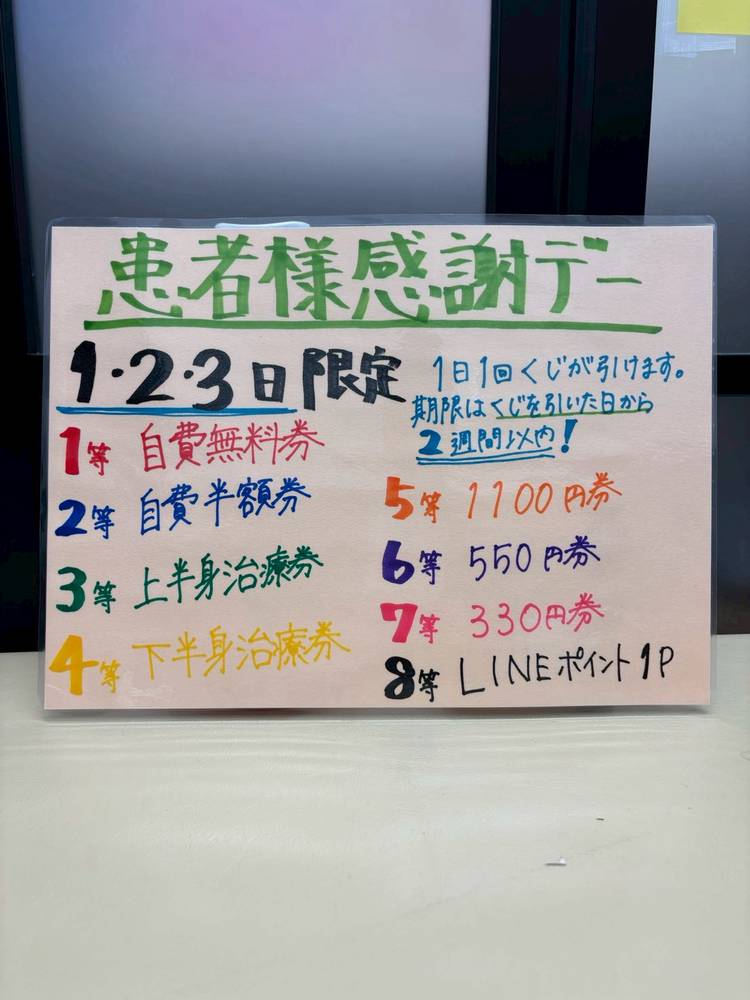 患者様感謝デー
1・2・3日限定
1日1回くじが引けます。
期限はくじを引いた日から
2週間以内！
1等 自費無料券
2等 自費半額券
3等 上半身治療券
4等 下半身治療券
5等 1100円券
6等 550円券
7等 330円券
8等 LINEポイント1P